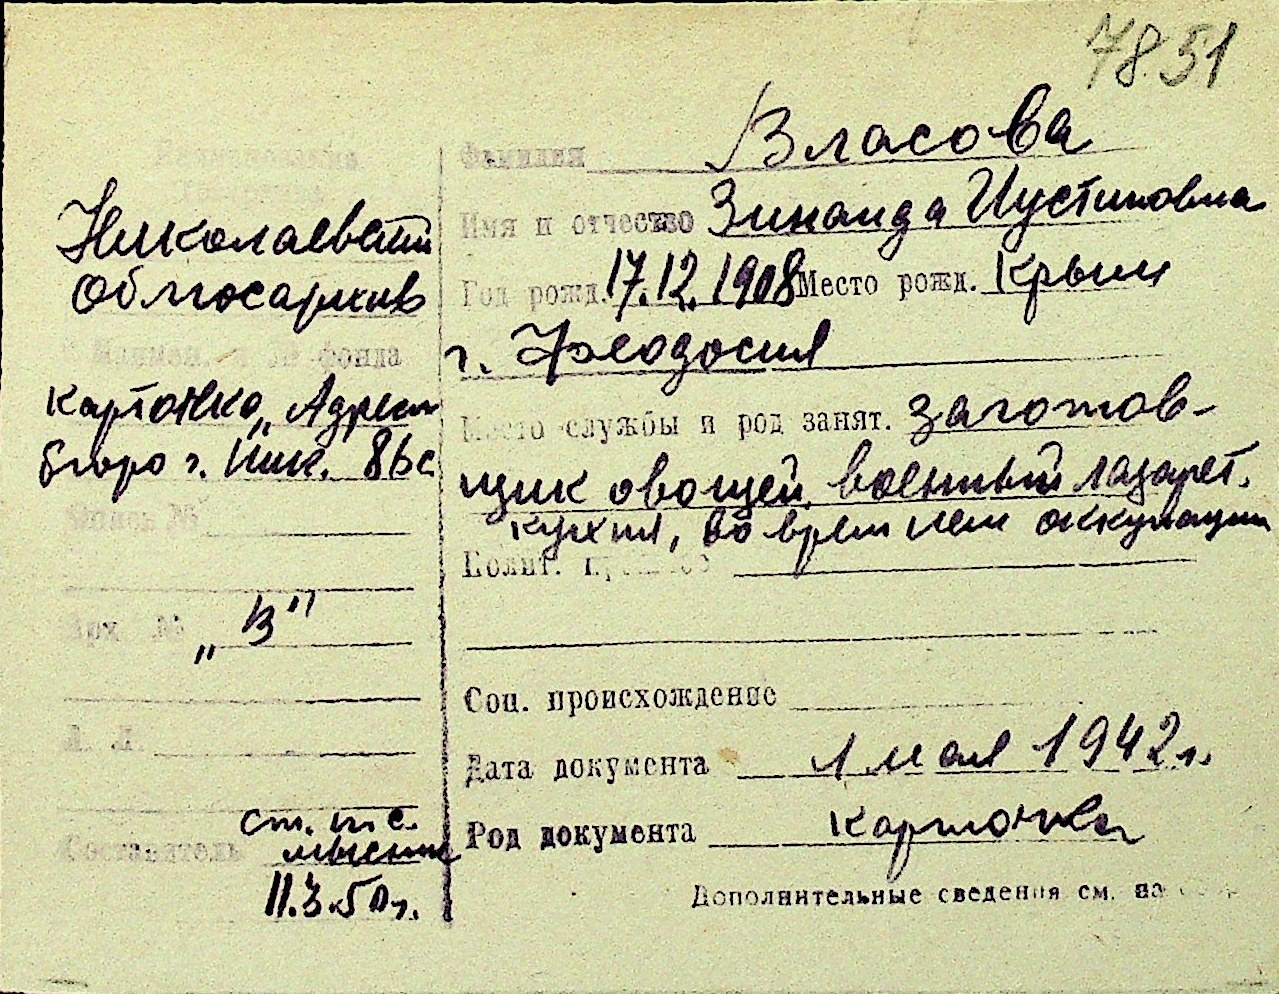 7851
Фамилия Власова
Имя и отчество Зинаида Иустиновна
Год рожд. 17.12.1908 Место рожд. Крым
г. Феодосия
Место службы и род занят. заготов-
щик овощей, военный лазарет.
кухня, во врем нем оккупации
Полит.
Соц. происхождение
Дата документа 1 мая 1942 г.
Род документа карточка
Дополнительные сведения см. на
Николаевский
Облгосархив
Наимен. и № фонда
картотека „Адресн
бюро г. Ник.
Опись №
Арх. № „В"
А. Л.
ст. н. с.
Составитель
11.3.50 г.